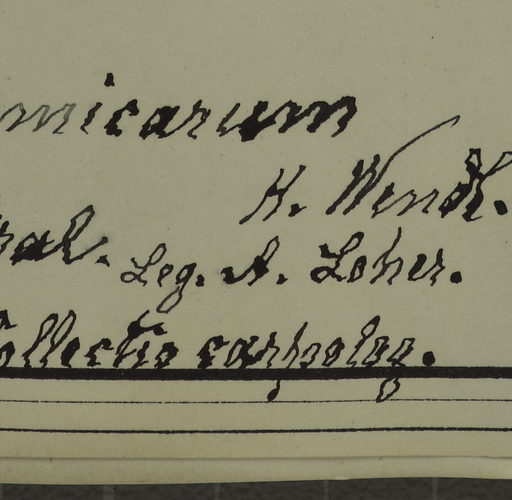 micarum
H. Wendl.
Leg. A. Loher.
Collectio carpolog.